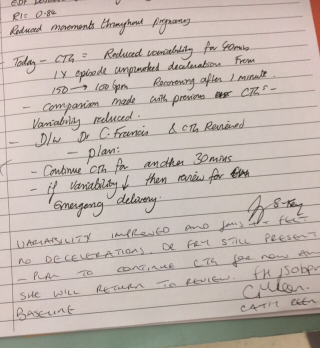 RI = 0.84
Reduced movements throughout pregnancy
Today - CTG = Reduced variability for 40mins
1 x episode unprovoked decelerations from
150 → 100bpm Recovering after 1 minute.
- Comparison made with previous CTGs -
Variability reduced.
- D/W Dr C. Francis & CTG Reviewed
- Plan:
- Continue CTG for another 30mins
- if variability ↓ then review for
Emergency delivery.
VARIABILITY IMPROVED AND FELT
NO DECELERATIONS. DR STILL PRESENT
- PLAN TO CONTINUE CTG FOR NOW AND
SHE WILL RETURN TO REVIEW. FH 150bpm
BASELINE